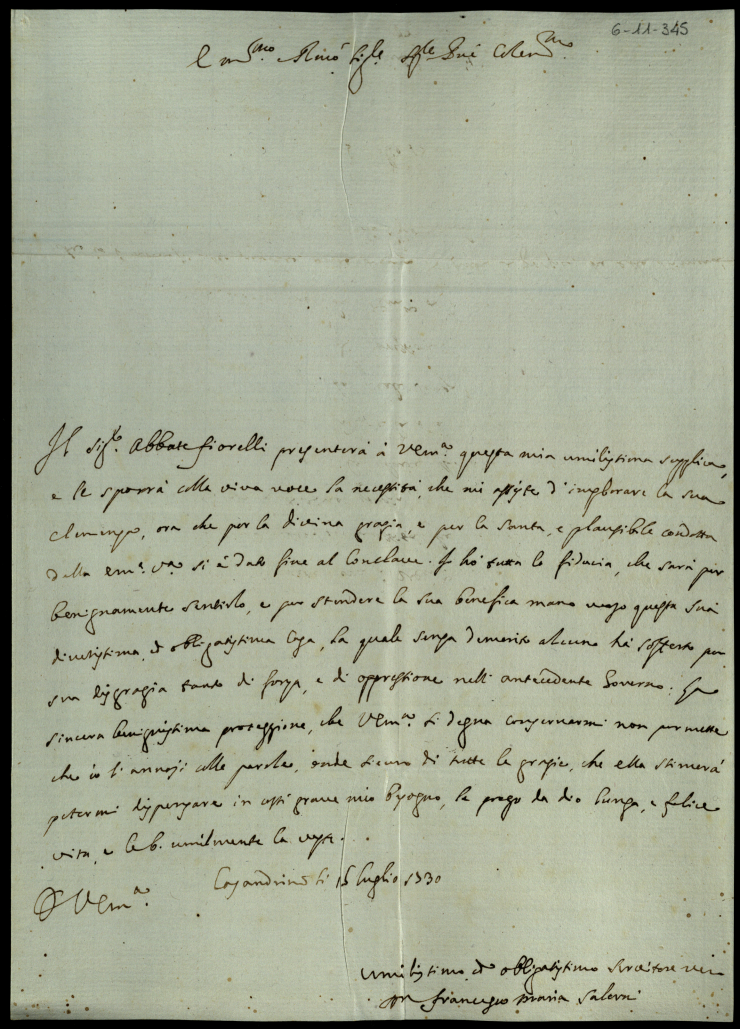 6-11-345
Em.mo Rmo Sig.e Sig.e Pne Colen.mo
Il Sig.e Abbate Fiorelli presenterà à VEm.a questa mia umilissima supplica,
e le sporrà colla viva voce la necessità che mi assiste d'implorare la sua
clemenza, ora che per la divina grazia, e per la santa, e plausibile condotta
della Em.a V.a si è dato fine al Conclave. Io hò tutta la fiducia, che sarà per
benignamente sentirlo, e per stendere la sua benefica mano verso questa sua
divotissima, ed obbligatissima Casa, la quale senza demerito alcuno hà sofferto per
sua disgrazia tanto di forza, e di oppressione nell'antecedente Governo: La
sincera benignissima protezzione, che VEm.a si degna conservarmi non permette
che io l'annoji colle parole, onde sicuro di tutte le grazie, che ella stimerà
potermi dispenzare in questo grave mio bisogno, le prego da Dio lunga, e felice
vita, e le b. umilmente la veste.
Casandrino li 15 luglio 1730
D VEm.a
Umilissimo, ed obbligatissimo servitore vero
Francesco Maria Salerni